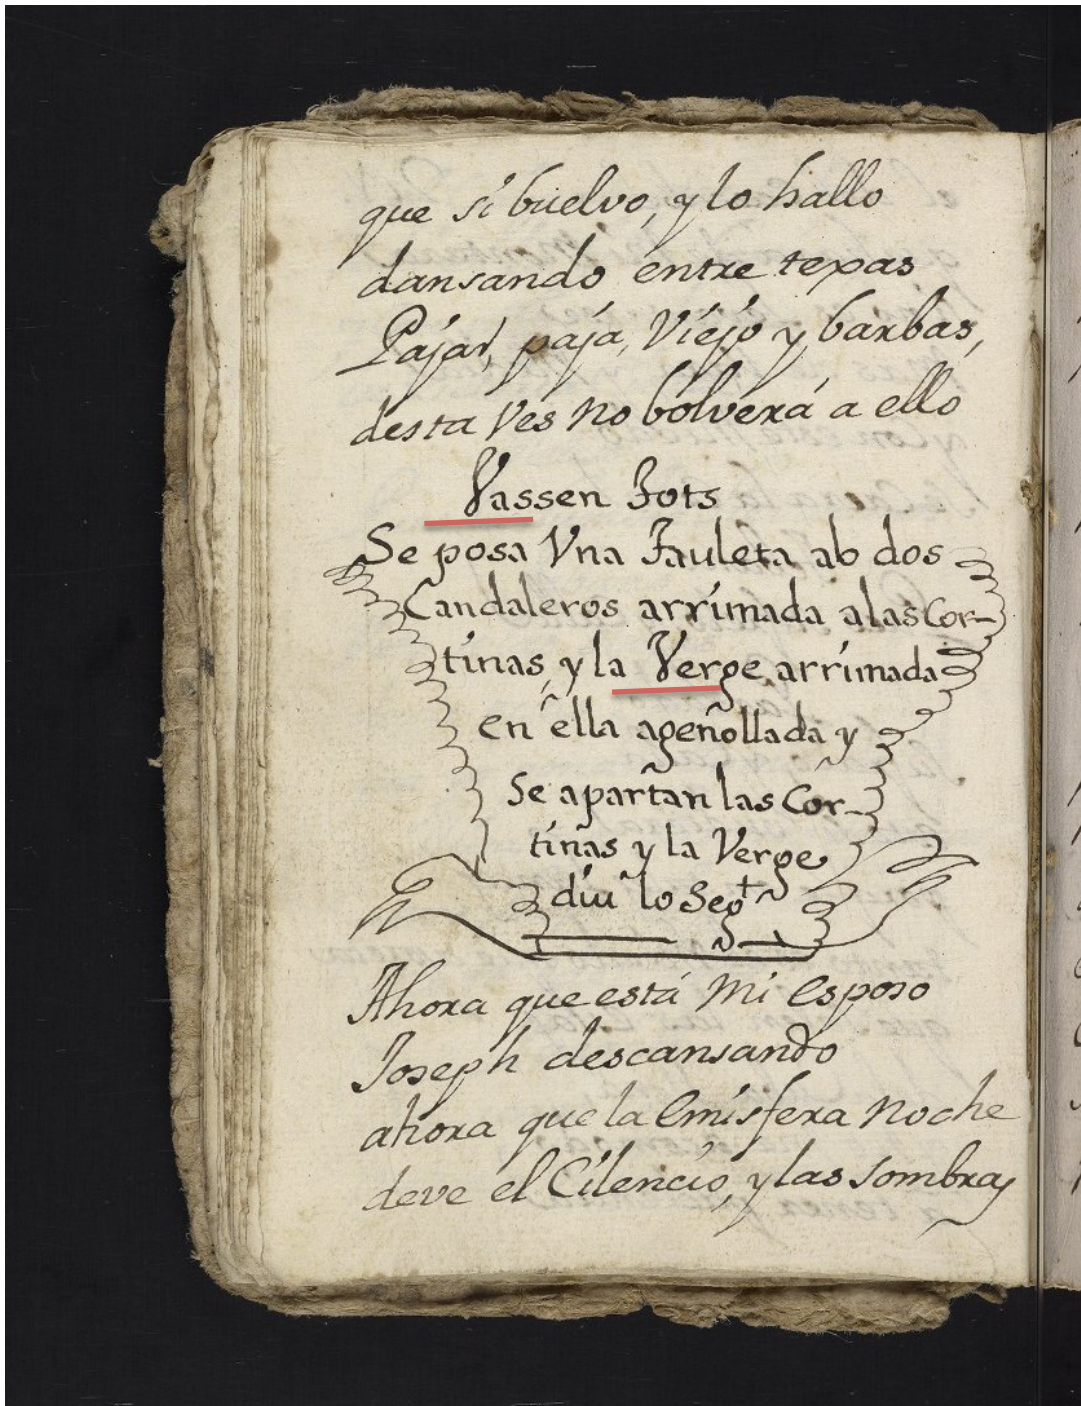 que si buelvo, y lo hallo
dansando entre texas
Pajar, paja, Viejo y barbas,
desta Ves no bolverá a ello
Vassen Tots
Se posa Vna Tauleta ab dos
Candaleros arrimada a las Cor-
tinas, y la Verge arrimada
en ella ageñollada y
Se apartan las Cor-
tinas y la Verge
diu lo Segt
Ahora que está mi esposo
Joseph descansando
ahora que la emisfera noche
deve el Cilencio, y las sombras